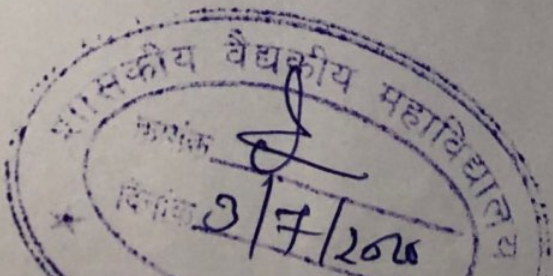 शासकीय वैद्यकीय महाविद्यालय
क्रमांक
दिनांक 3/7/2020